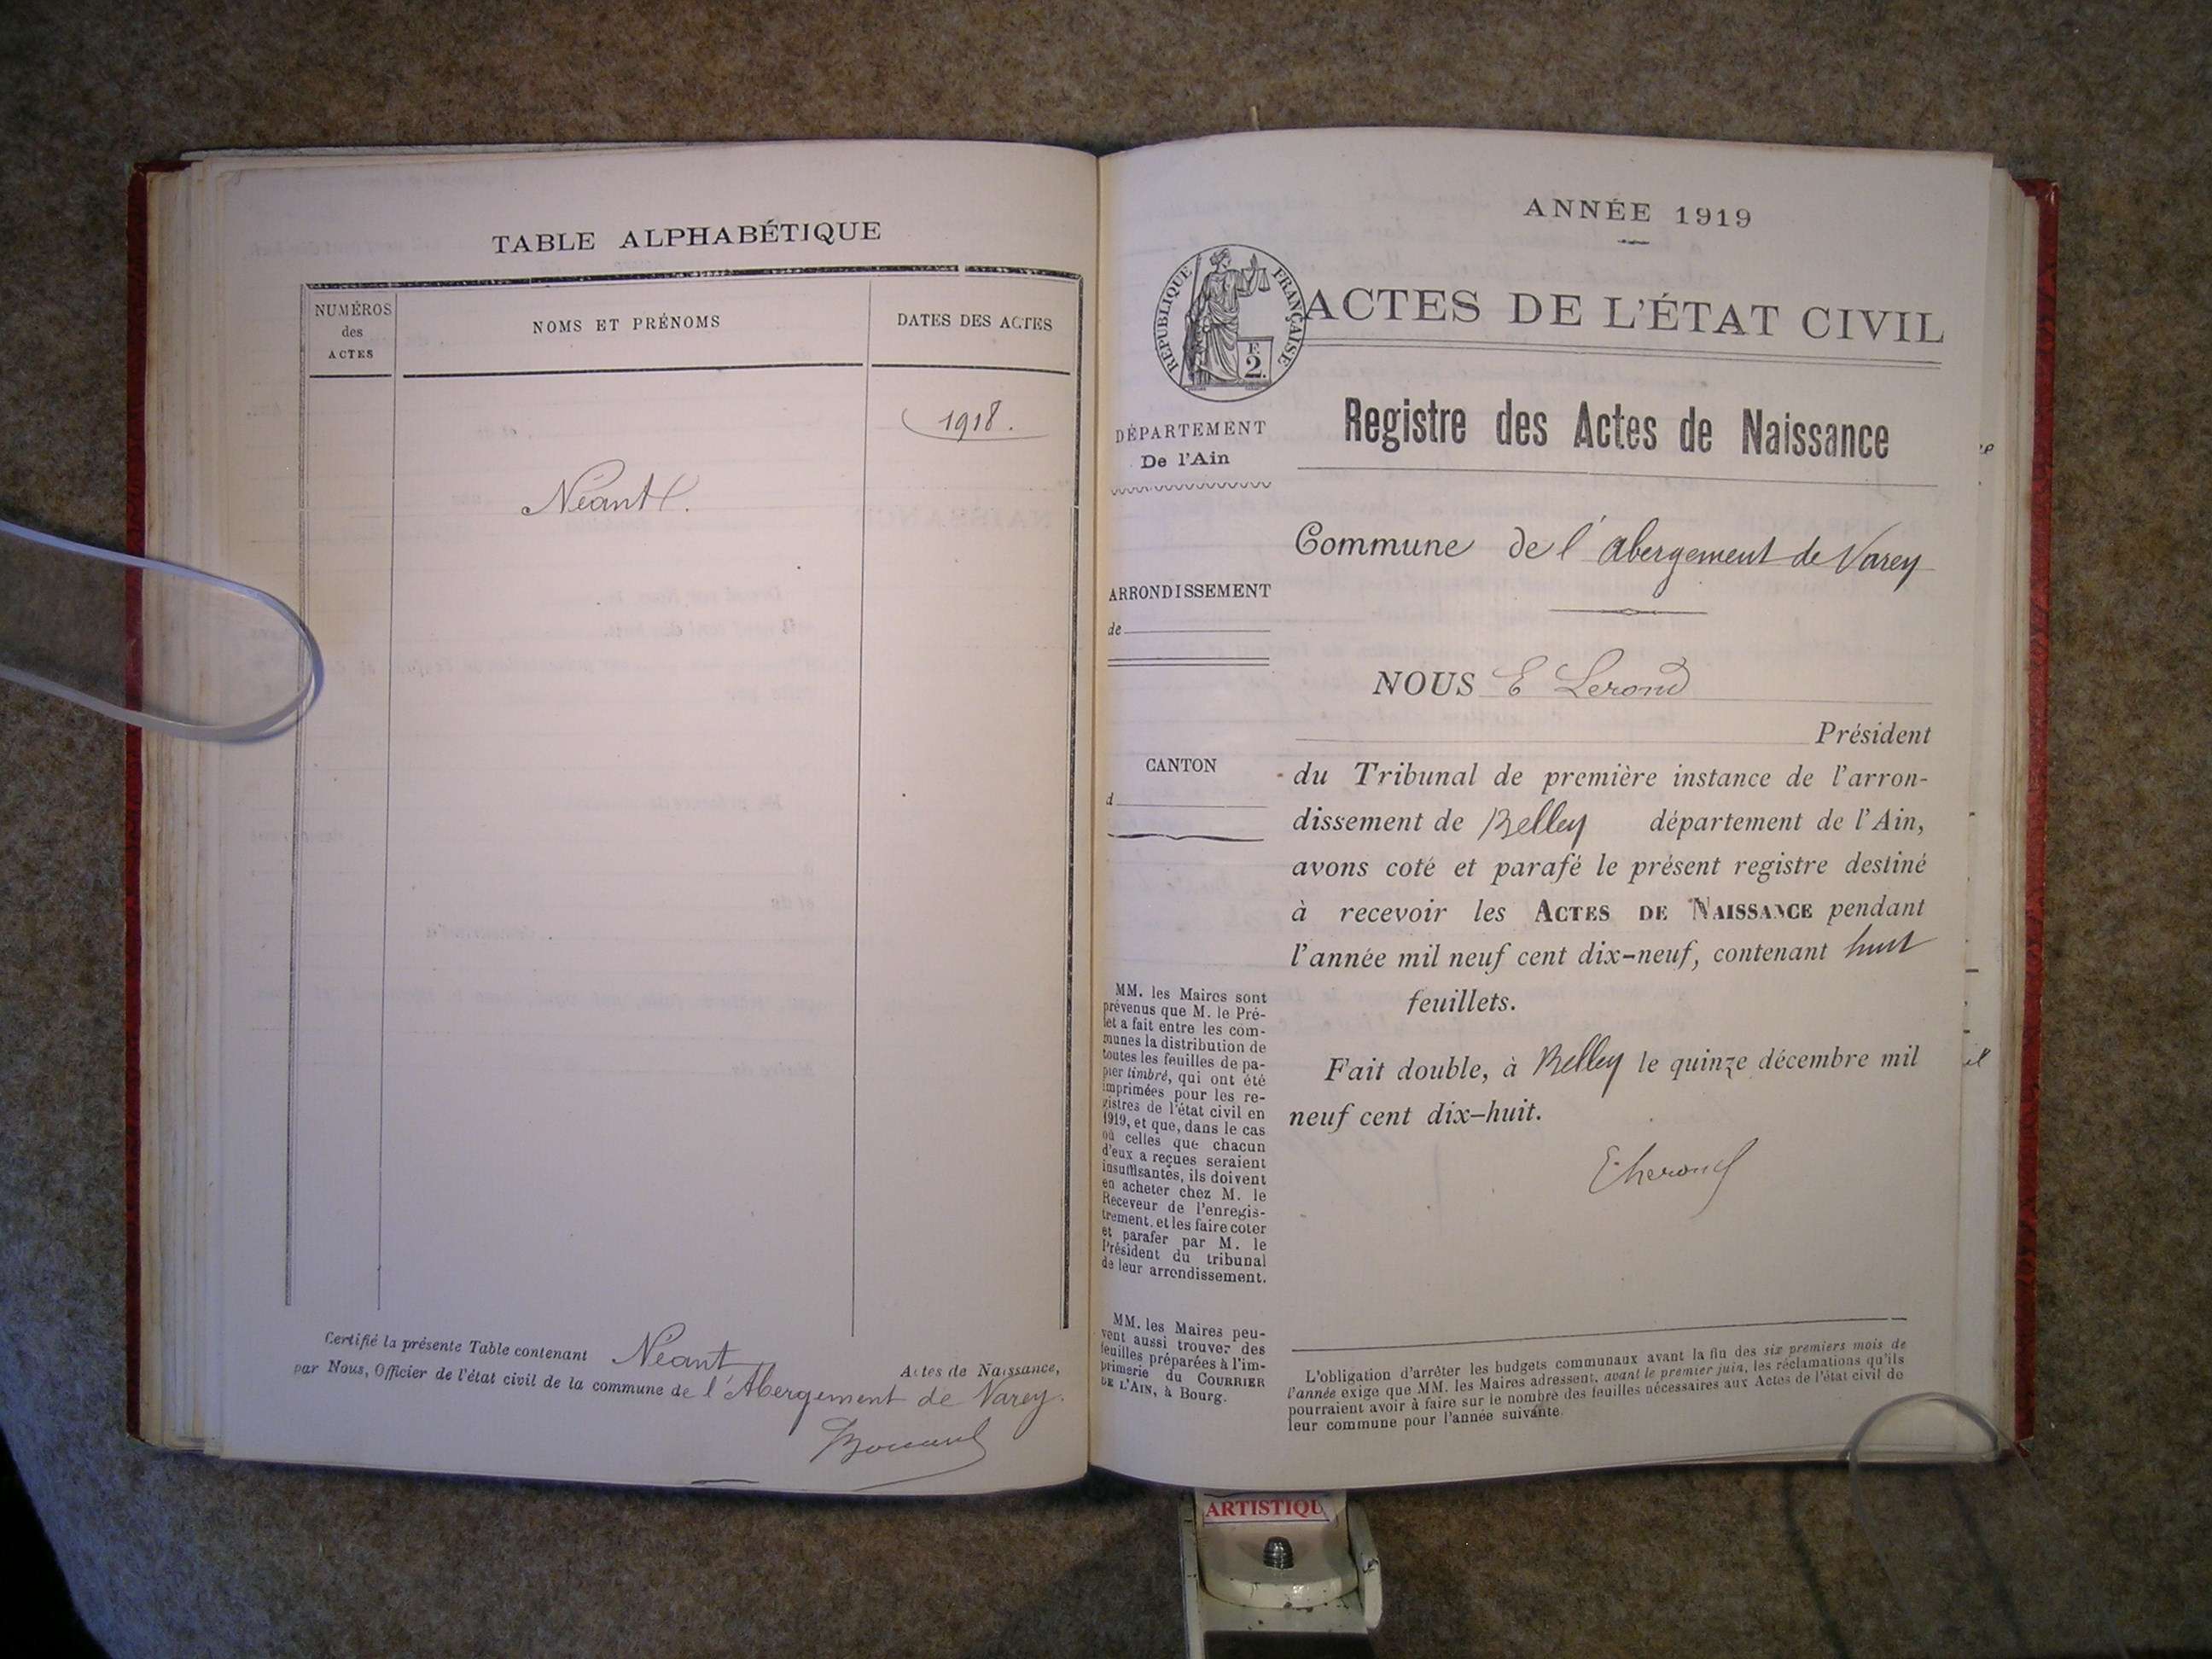 TABLE ALPHABÉTIQUE
NUMÉROS
des
ACTES
NOMS ET PRÉNOMS
DATES DES ACTES
1918.
Néant.
Certifié la présente Table contenant Néant Actes de Naissance,
par Nous, Officier de l'état civil de la commune de l'Abergement de Varey.
ANNÉE 1919
RÉPUBLIQUE FRANÇAISE
F.
2.
ACTES DE L'ÉTAT CIVIL
Registre des Actes de Naissance
DÉPARTEMENT
De l'Ain
ARRONDISSEMENT
de
CANTON
d
MM. les Maires sont
prévenus que M. le Pré-
fet a fait entre les com-
munes la distribution de
toutes les feuilles de pa-
pier timbré, qui ont été
imprimées pour les re-
gistres de l'état civil en
1919, et que, dans le cas
où celles que chacun
d'eux a reçues seraient
insuffisantes, ils doivent
en acheter chez M. le
Receveur de l'enregis-
trement, et les faire coter
et parafer par M. le
Président du tribunal
de leur arrondissement.
MM. les Maires peu-
vent aussi trouver des
feuilles préparées à l'im-
primerie du COURRIER
DE L'AIN, à Bourg.
Commune de l'abergement de Varey
NOUS E Lerond
Président
du Tribunal de première instance de l'arron-
dissement de Belley département de l'Ain,
avons coté et parafé le présent registre destiné
à recevoir les ACTES DE NAISSANCE pendant
l'année mil neuf cent dix-neuf, contenant huit
feuillets.
Fait double, à Belley le quinze décembre mil
neuf cent dix-huit.
E Lerond
L'obligation d'arrêter les budgets communaux avant la fin des six premiers mois de
l'année exige que MM. les Maires adressent, avant le premier juin, les réclamations qu'ils
pourraient avoir à faire sur le nombre des feuilles nécessaires aux Actes de l'état civil de
leur commune pour l'année suivante.
ARTISTIQU